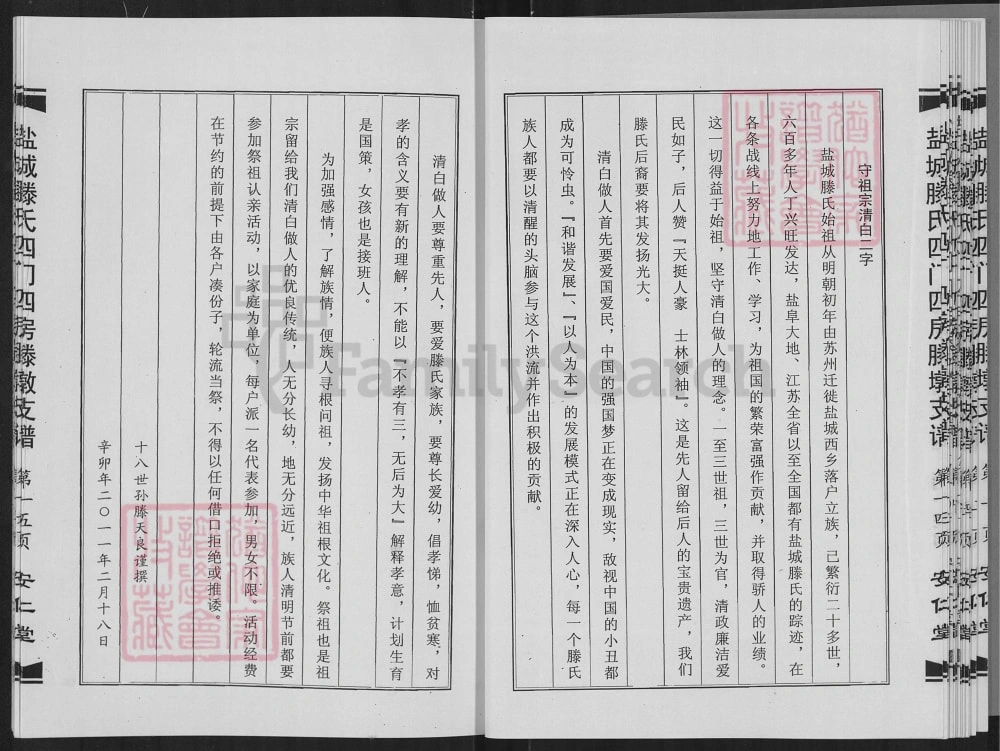 守祖宗清白二字
盐城滕氏始祖从明朝初年由苏州迁徙盐城西乡落户立族，已繁衍二十多世，
六百多年人丁兴旺发达，盐阜大地、江苏全省以至全国都有盐城滕氏的踪迹，在
各条战线上努力地工作、学习，为祖国的繁荣富强作贡献，并取得骄人的业绩。
这一切得益于始祖，坚守清白做人的理念。一至三世祖，三世为官，清政廉洁爱
民如子，后人赞『天挺人豪　士林领袖』。这是先人留给后人的宝贵遗产，我们
滕氏后裔要将其发扬光大。
清白做人首先要爱国爱民，中国的强国梦正在变成现实，敌视中国的小丑都
成为可怜虫。『和谐发展』、『以人为本』的发展模式正在深入人心，每一个滕氏
族人都要以清醒的头脑参与这个洪流并作出积极的贡献。
盐城滕氏四门四房滕墩支谱 第一四页 安仁堂
清白做人要尊重先人，要爱滕氏家族，要尊长爱幼，倡孝悌，恤贫寒，对
孝的含义要有新的理解，不能以『不孝有三，无后为大』解释孝意，计划生育
是国策，女孩也是接班人。
为加强感情，了解族情，便族人寻根问祖，发扬中华祖根文化。祭祖也是祖
宗留给我们清白做人的优良传统，人无分长幼，地无分远近，族人清明节前都要
参加祭祖认亲活动，以家庭为单位，每户派一名代表参加，男女不限。活动经费
在节约的前提下由各户凑份子，轮流当祭，不得以任何借口拒绝或推诿。
十八世孙滕天良谨撰
辛卯年二〇一一年二月十八日
盐城滕氏四门四房滕墩支谱 第一五页 安仁堂
FamilySearch